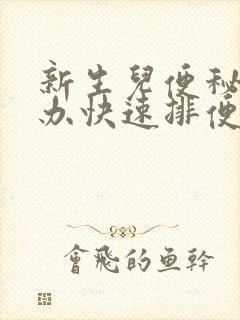 新生兒便秘
办快速排便
會飛的鱼幹